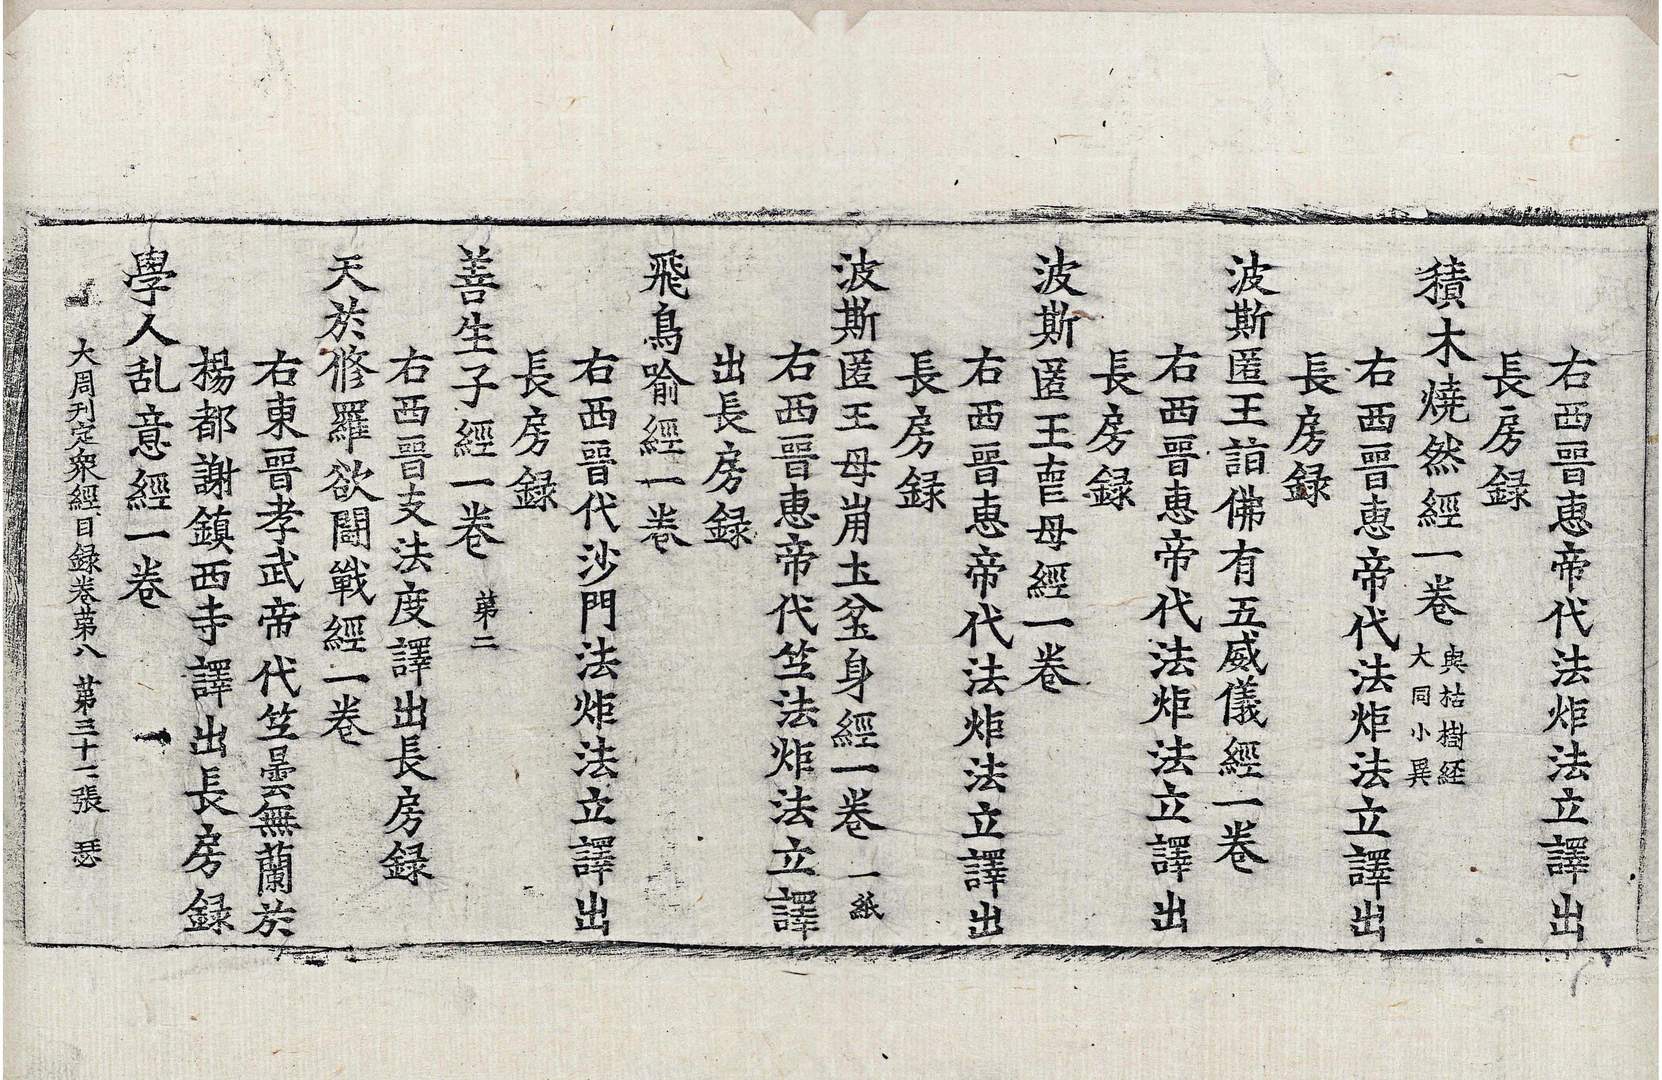 右西晉惠帝代法炬法立譯出
長房録
積木燒然經一卷 與枯樹経大同小異
右西晉惠帝代法炬法立譯出
長房録
波斯匿王詣佛有五威儀經一卷
右西晉惠帝代法炬法立譯出
長房録
波斯匿王喪母經一卷
右西晉惠帝代法炬法立譯出
長房録
波斯匿王母崩圡坌身經一卷 一紙
右西晉惠帝代竺法炬法立譯
出長房録
飛鳥喻經一卷
右西晉代沙門法炬法立譯出
長房録
善生子經一卷 苐二
右西晉支法度譯出長房録
天於脩羅欲鬪戰經一卷
右東晉孝武帝代竺曇無蘭於
楊都謝鎮西寺譯出長房録
學人乱意經一卷
大周刊定衆經目録卷苐八 苐三十一張 瑟